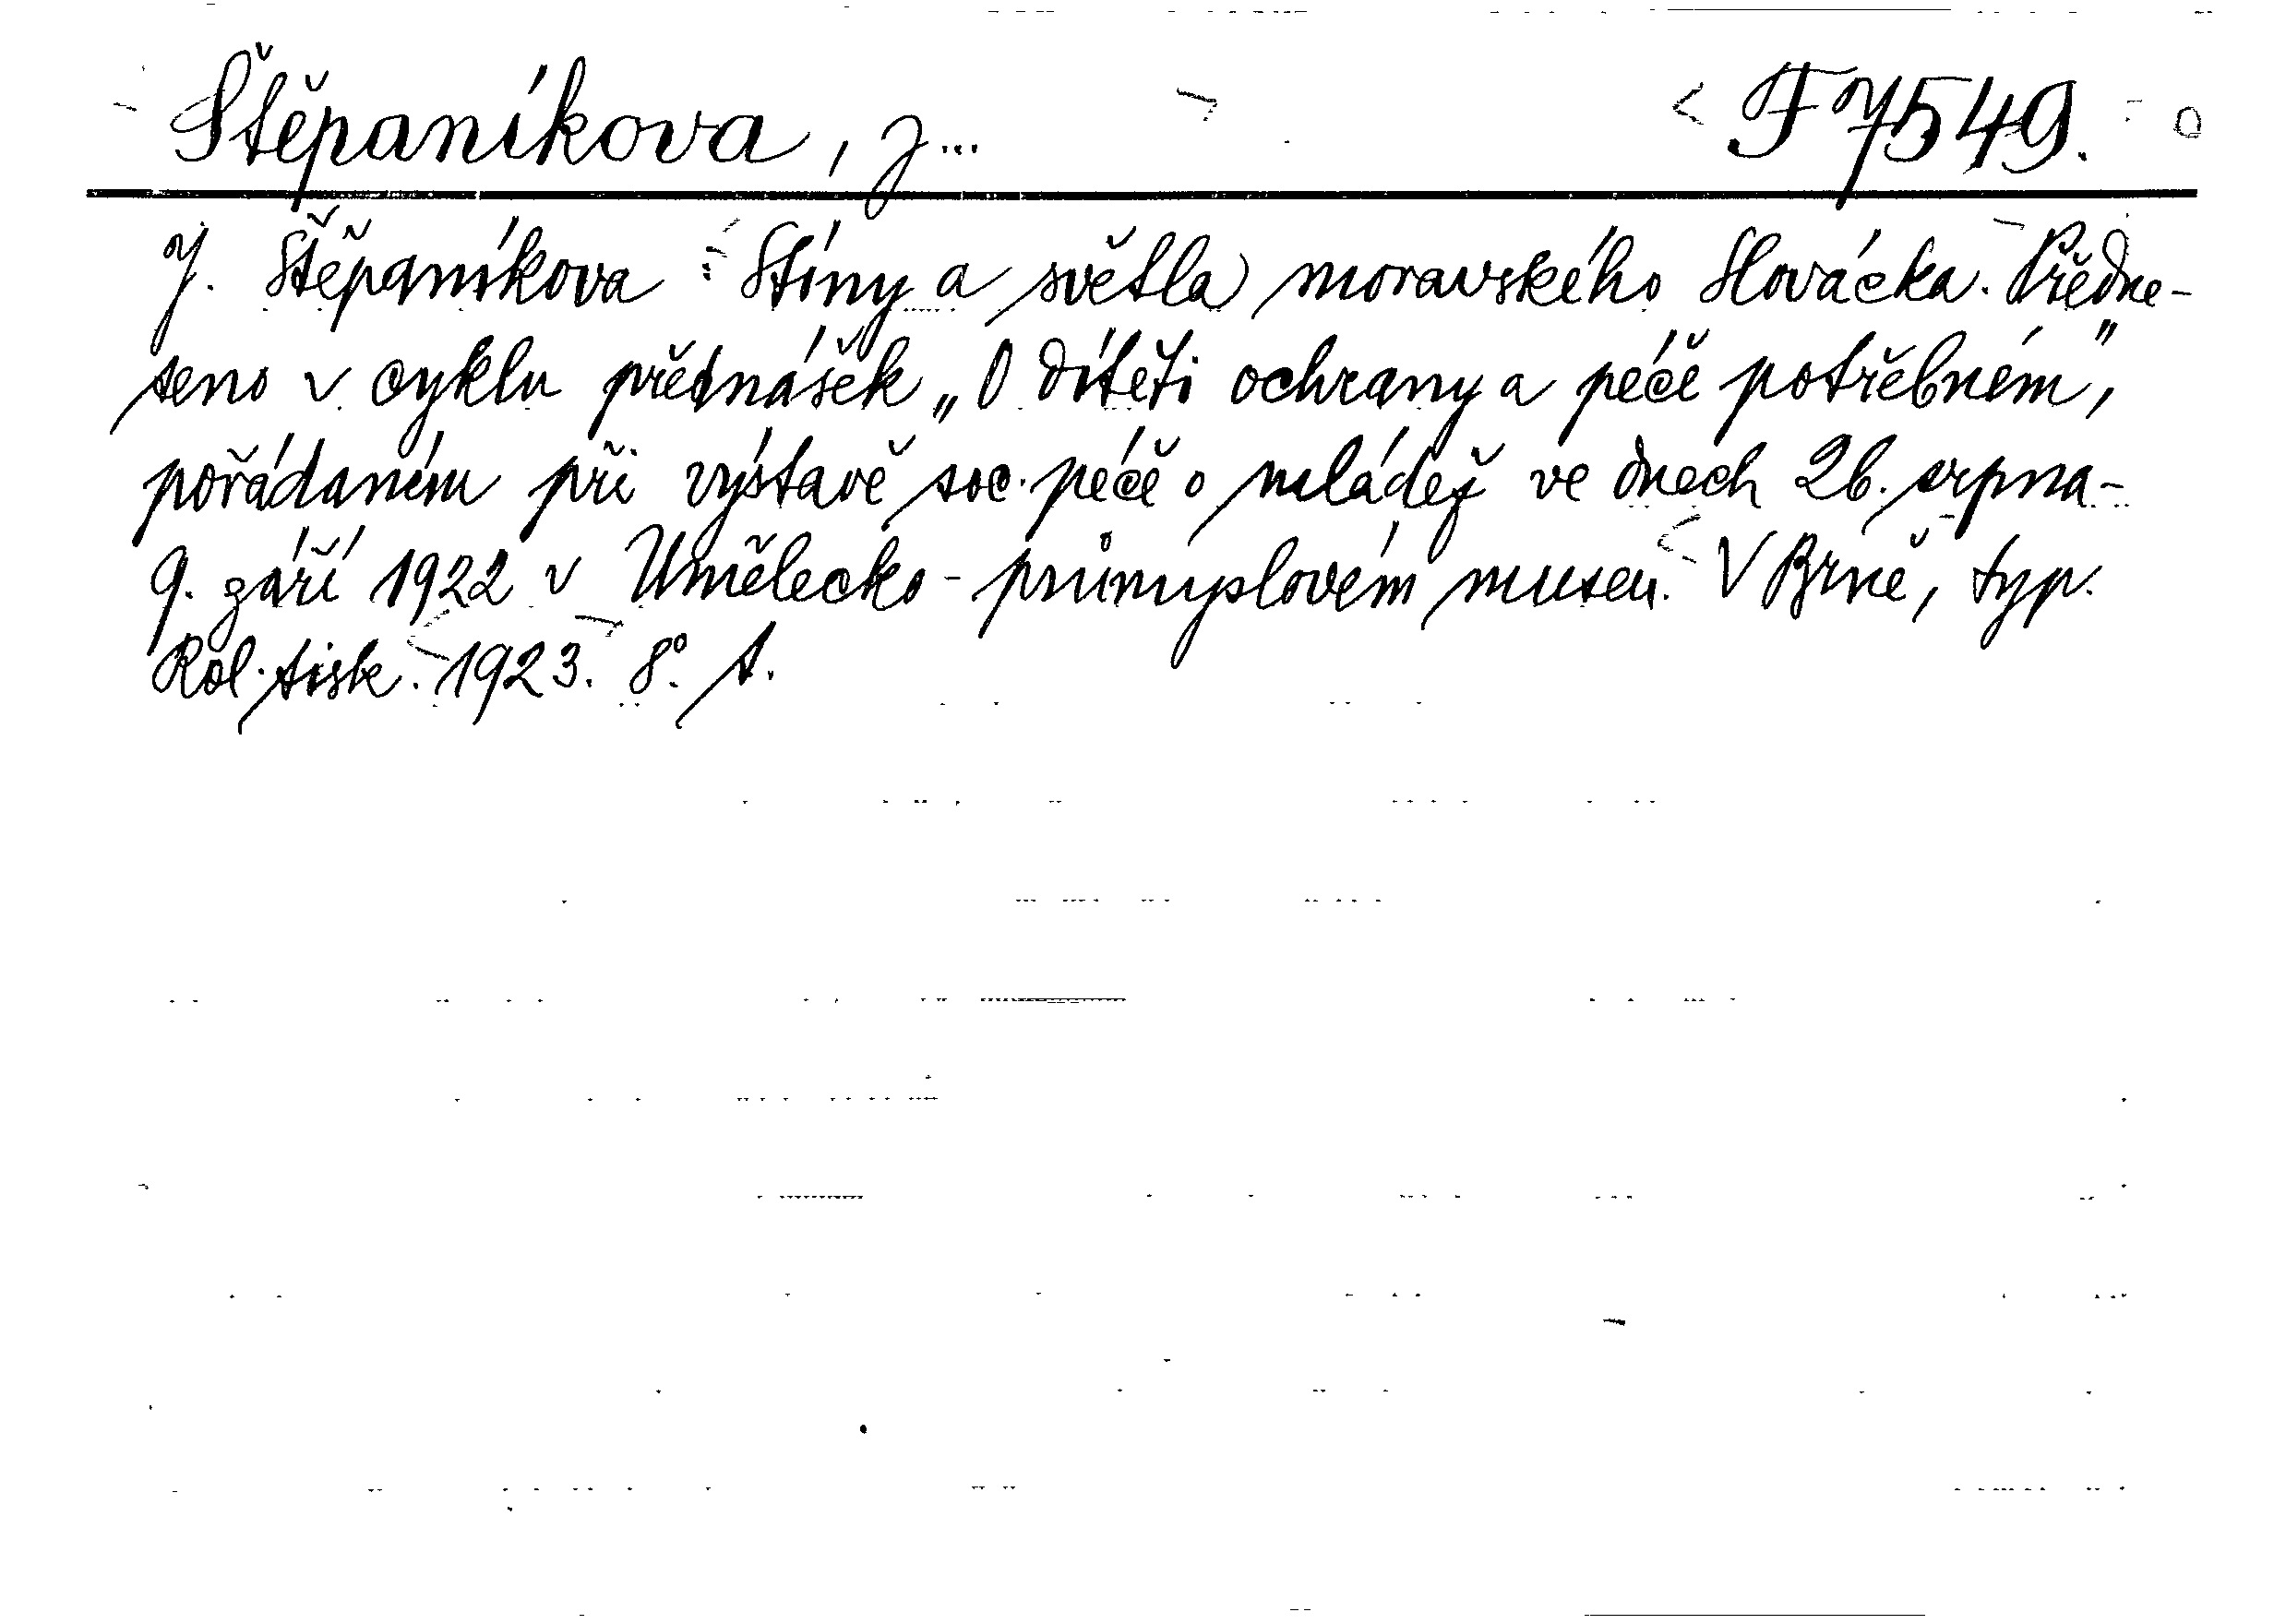 Štěpaníkova, J...
F 7549.
J. Štěpaníkova : Stíny a světla moravského Slovácka. Předne-
seno v cyklu přednášek „O dítěti ochrany a péče potřebném",
pořádaném při výstavě soc. péče o mládež ve dnech 26. srpna -
9. září 1922 v Umělecko - průmyslovém museu. V Brně, typ.
Rol. tisk. 1923. 8°. s.